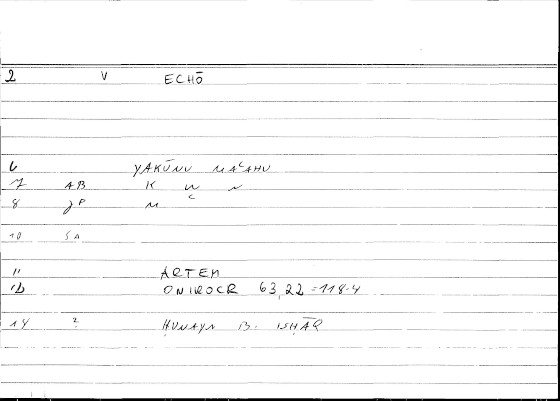 2 V ECHŌ
6 YAKŪNU MAʿAHU
7 AB K W N
8 JP M ʿ
10 SA
11 ARTEM
12 ONIROCR 63,22 = 118-4
14 ? ḤUNAYN B. ISḤĀQ